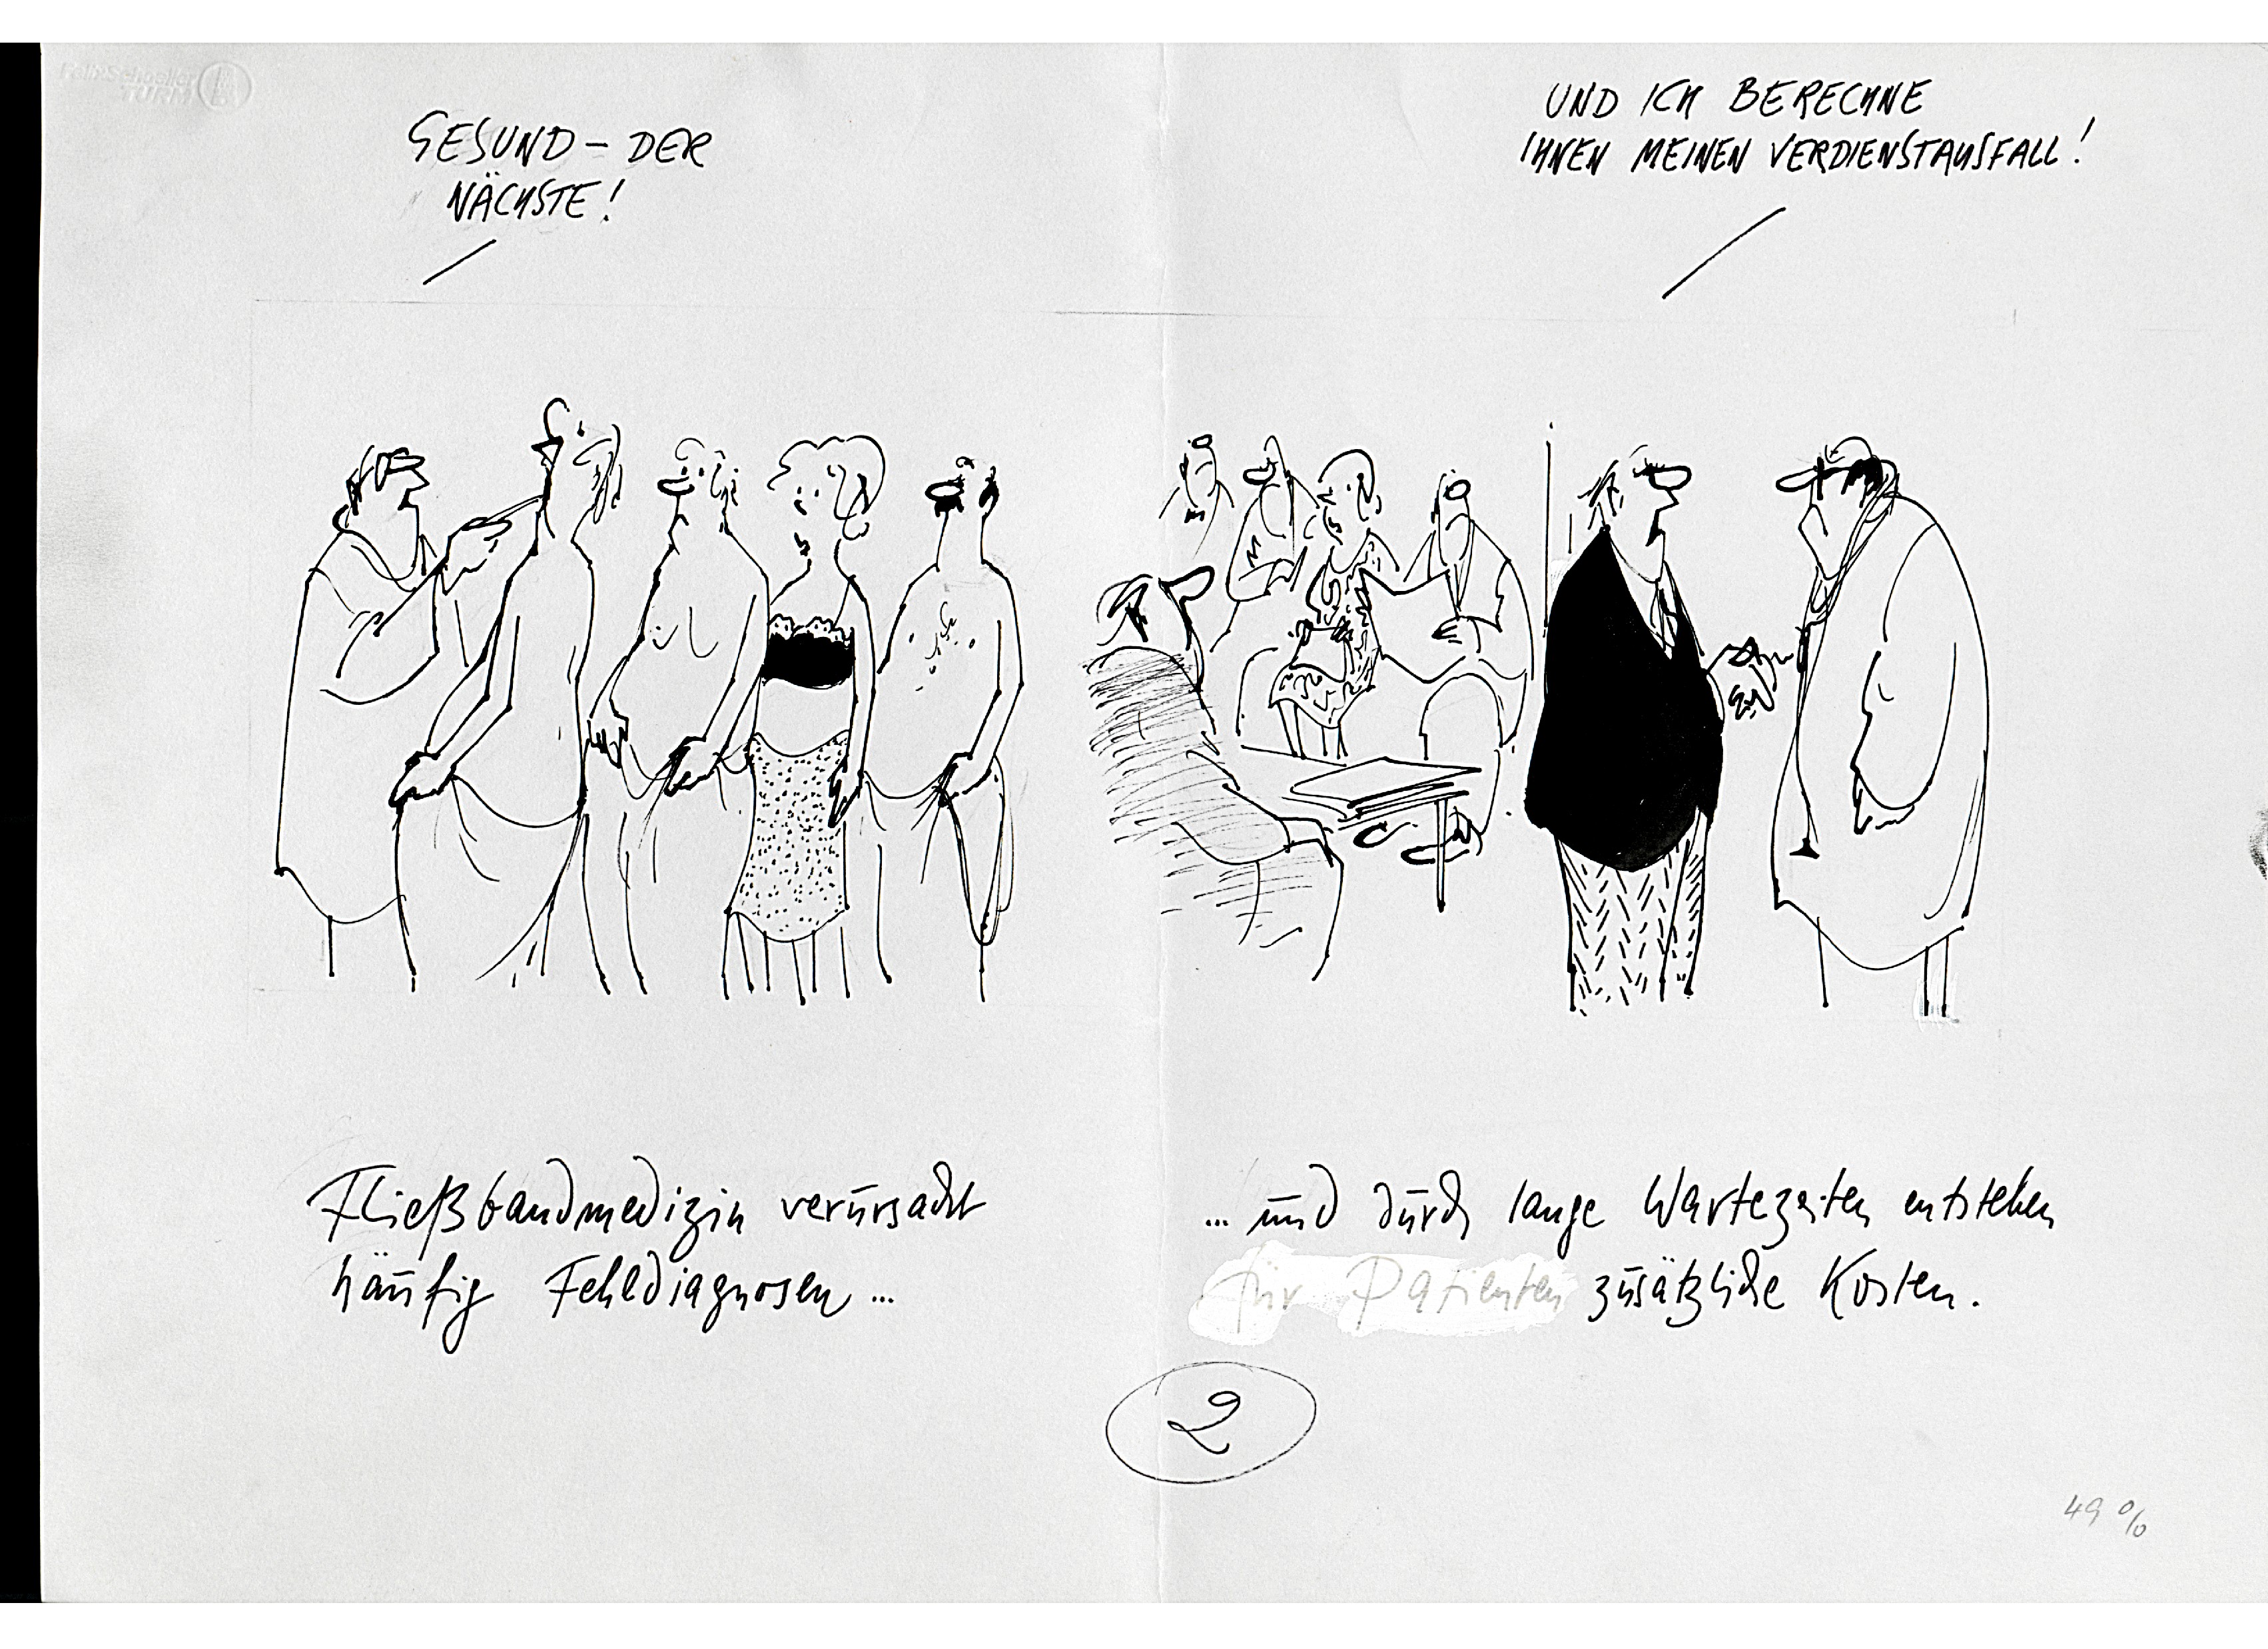 Felix Schoeller
TURM
GESUND – DER
NÄCHSTE!
UND ICH BERECHNE
IHNEN MEINEN VERDIENSTAUSFALL!
Fließbandmedizin verursacht
häufig Fehldiagnosen ...
... und durch lange Wartezeiten entstehen
für Patienten zusätzliche Kosten.
2
49 %